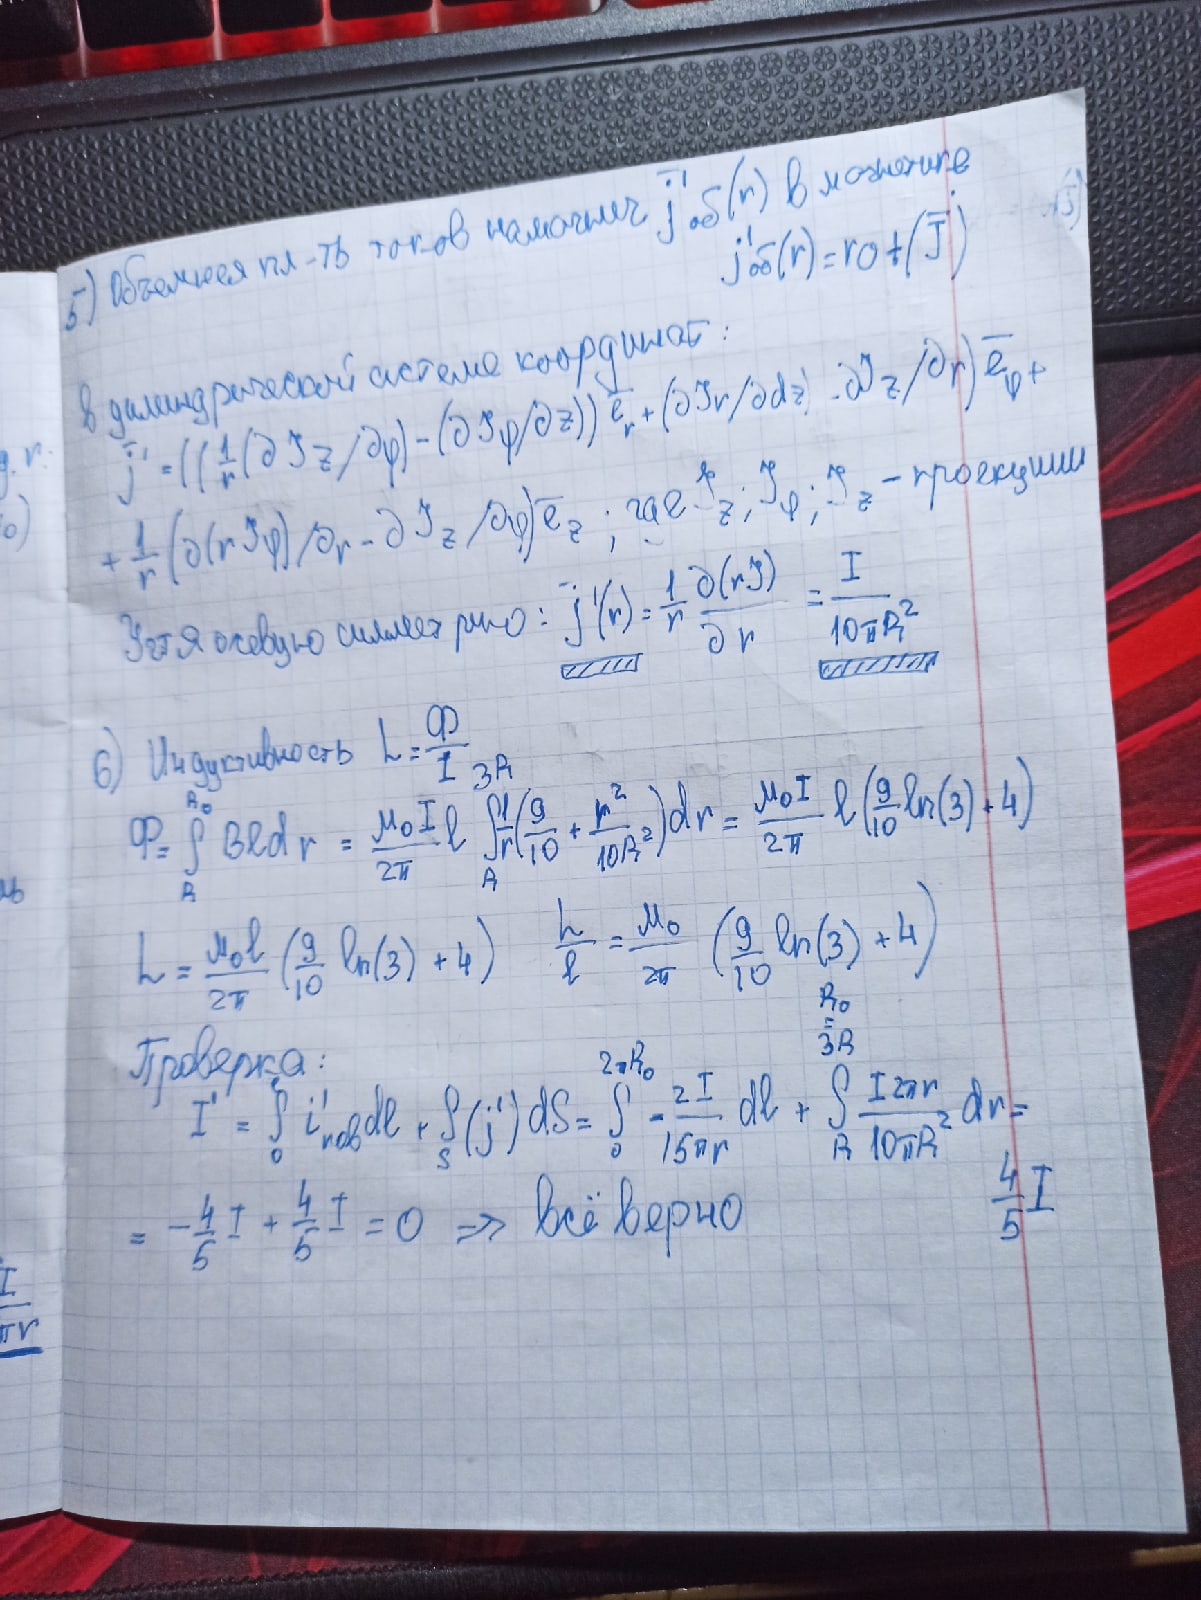 5) Объемная пл-ть токов намагнич j̄'об(r) в магнетике
j'об(r) = rot(J̄)
В цилиндрической системе координат:
j̄' = ((1/r (∂Jz/∂φ) - (∂Jφ/∂z)) ēr + (∂Jr/∂dz) - ∂Jz/∂r) ēφ +
+ 1/r (∂(rJφ)/∂r - ∂Jz/∂φ) ēz ; где Jz; Jφ; Jz - проекции
Учтя осевую симметрию: j̄'(r) = 1/r ∂(rJ)/∂r = I/10πR²
6) Индуктивность L = Ф/I
Ф = ∫_R^R₀ Bldr = μ₀I/2π l ∫_R^3R 1/r (9/10 + r²/10R²) dr = μ₀I/2π l (9/10 ln(3) + 4)
L = μ₀l/2π (9/10 ln(3) + 4) L/l = μ₀/2π (9/10 ln(3) + 4)
Проверка:
I' = ∫_0 i'пов dl + ∫_S (j') dS = ∫_0^2πR₀ - 2I/15πr dl + ∫_R^R₀=3R I2πr/10πR² dr =
= -4/5 I + 4/5 I = 0 => всё верно 4/5 I
I
πr